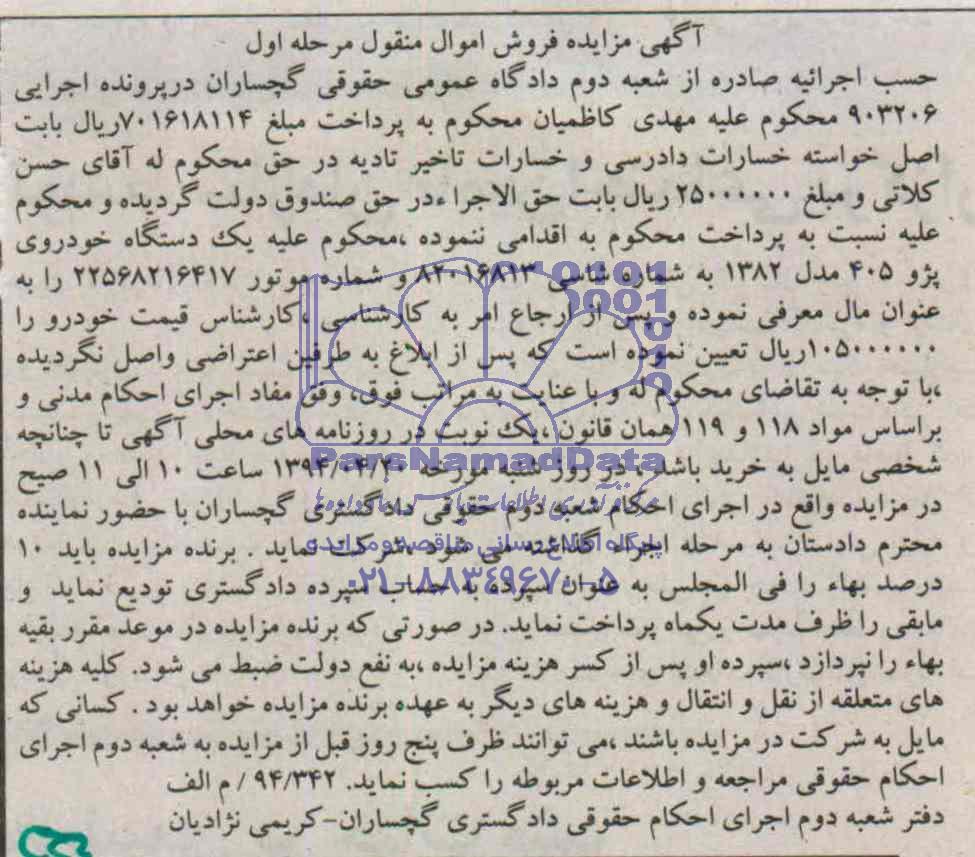 آگهی مزایده فروش اموال منقول مرحله اول
حسب اجرائیه صادره از شعبه دوم دادگاه عمومی حقوقی گچساران درپرونده اجرایی
۹۰۳۲۰۶ محکوم علیه مهدی کاظمیان محکوم به پرداخت مبلغ ۷۰۱۶۱۸۱۱۴ریال بابت
اصل خواسته خسارات دادرسی و خسارات تاخیر تادیه در حق محکوم له آقای حسن
کلاتی و مبلغ ۲۵۰۰۰۰۰۰ ریال بابت حق الاجرا ءدر حق صندوق دولت گردیده و محکوم
علیه نسبت به پرداخت محکوم به اقدامی ننموده ،محکوم علیه یک دستگاه خودروی
پژو ۴۰۵ مدل ۱۳۸۲ به شماره شاسی ۸۲۰۱۶۸۱۳ و شماره موتور ۲۲۵۶۸۲۱۶۴۱۷ را به
عنوان مال معرفی نموده و پس از ارجاع امر به کارشناسی ،کارشناس قیمت خودرو را
۱۰۵۰۰۰۰۰۰ریال تعیین نموده است که پس از ابلاغ به طرفین اعتراضی واصل نگردیده
،با توجه به تقاضای محکوم له و با عنایت به مراتب فوق، وفق مفاد اجرای احکام مدنی و
براساس مواد ۱۱۸ و ۱۱۹ همان قانون ،یک نوبت در روزنامه های محلی آگهی تا چنانچه
شخصی مایل به خرید باشد ، در روز شنبه مورخه ۱۳۹۴/۰۴/۲۰ ساعت ۱۰ الی ۱۱ صبح
در مزایده واقع در اجرای احکام شعبه دوم حقوقی دادگستری گچساران با حضور نماینده
محترم دادستان به مرحله اجرا گذاشته می شود ،شرکت نماید . برنده مزایده باید ۱۰
درصد بهاء را فی المجلس به عنوان سپرده به حساب سپرده دادگستری تودیع نماید و
مابقی را ظرف مدت یکماه پرداخت نماید. در صورتی که برنده مزایده در موعد مقرر بقیه
بهاء را نپردازد ،سپرده او پس از کسر هزینه مزایده ،به نفع دولت ضبط می شود. کلیه هزینه
های متعلقه از نقل و انتقال و هزینه های دیگر به عهده برنده مزایده خواهد بود . کسانی که
مایل به شرکت در مزایده باشند ،می توانند ظرف پنج روز قبل از مزایده به شعبه دوم اجرای
احکام حقوقی مراجعه و اطلاعات مربوطه را کسب نماید. ۹۴/۳۴۲ / م الف
دفتر شعبه دوم اجرای احکام حقوقی دادگستری گچساران-کریمی نژادیان
ParsNamadData
پایگاه اطلاع رسانی مناقصه و مزایده
۰۲۱-۸۸۳۴۹۶۷۰-۵